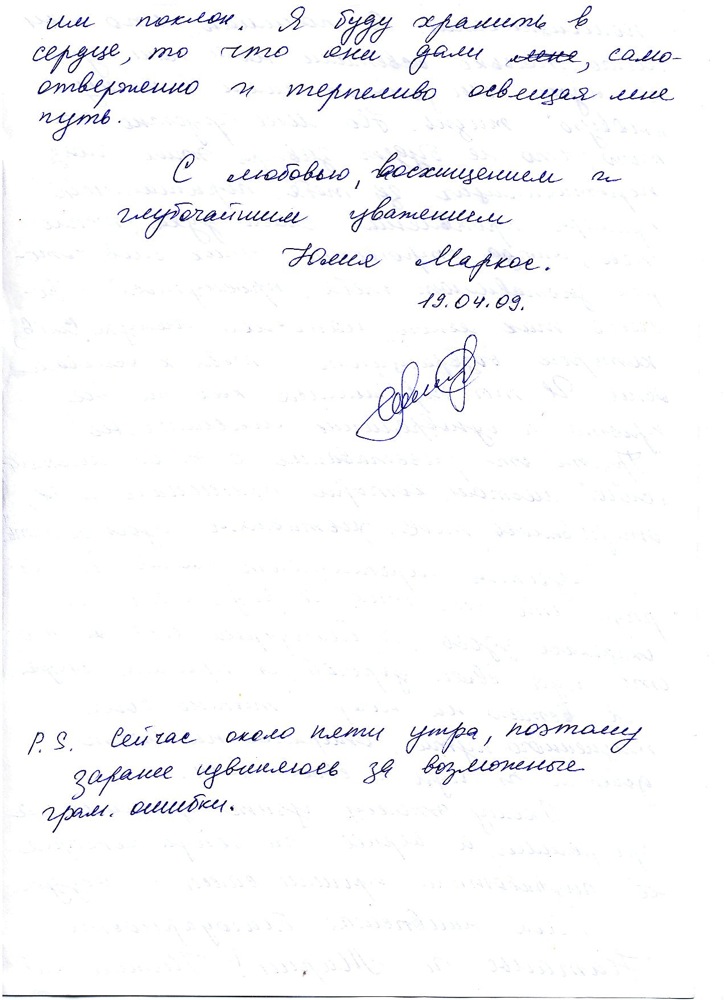 им поклон. Я буду хранить в
сердце, то что они дали мне, само-
отверженно и терпеливо освещая мне
путь.
С любовью, восхищением и
глубочайшим уважением
Юлия Маркос.
19.04.09.
P.S. Сейчас около пяти утра, поэтому
заранее извиняюсь за возможные
грам. ошибки.